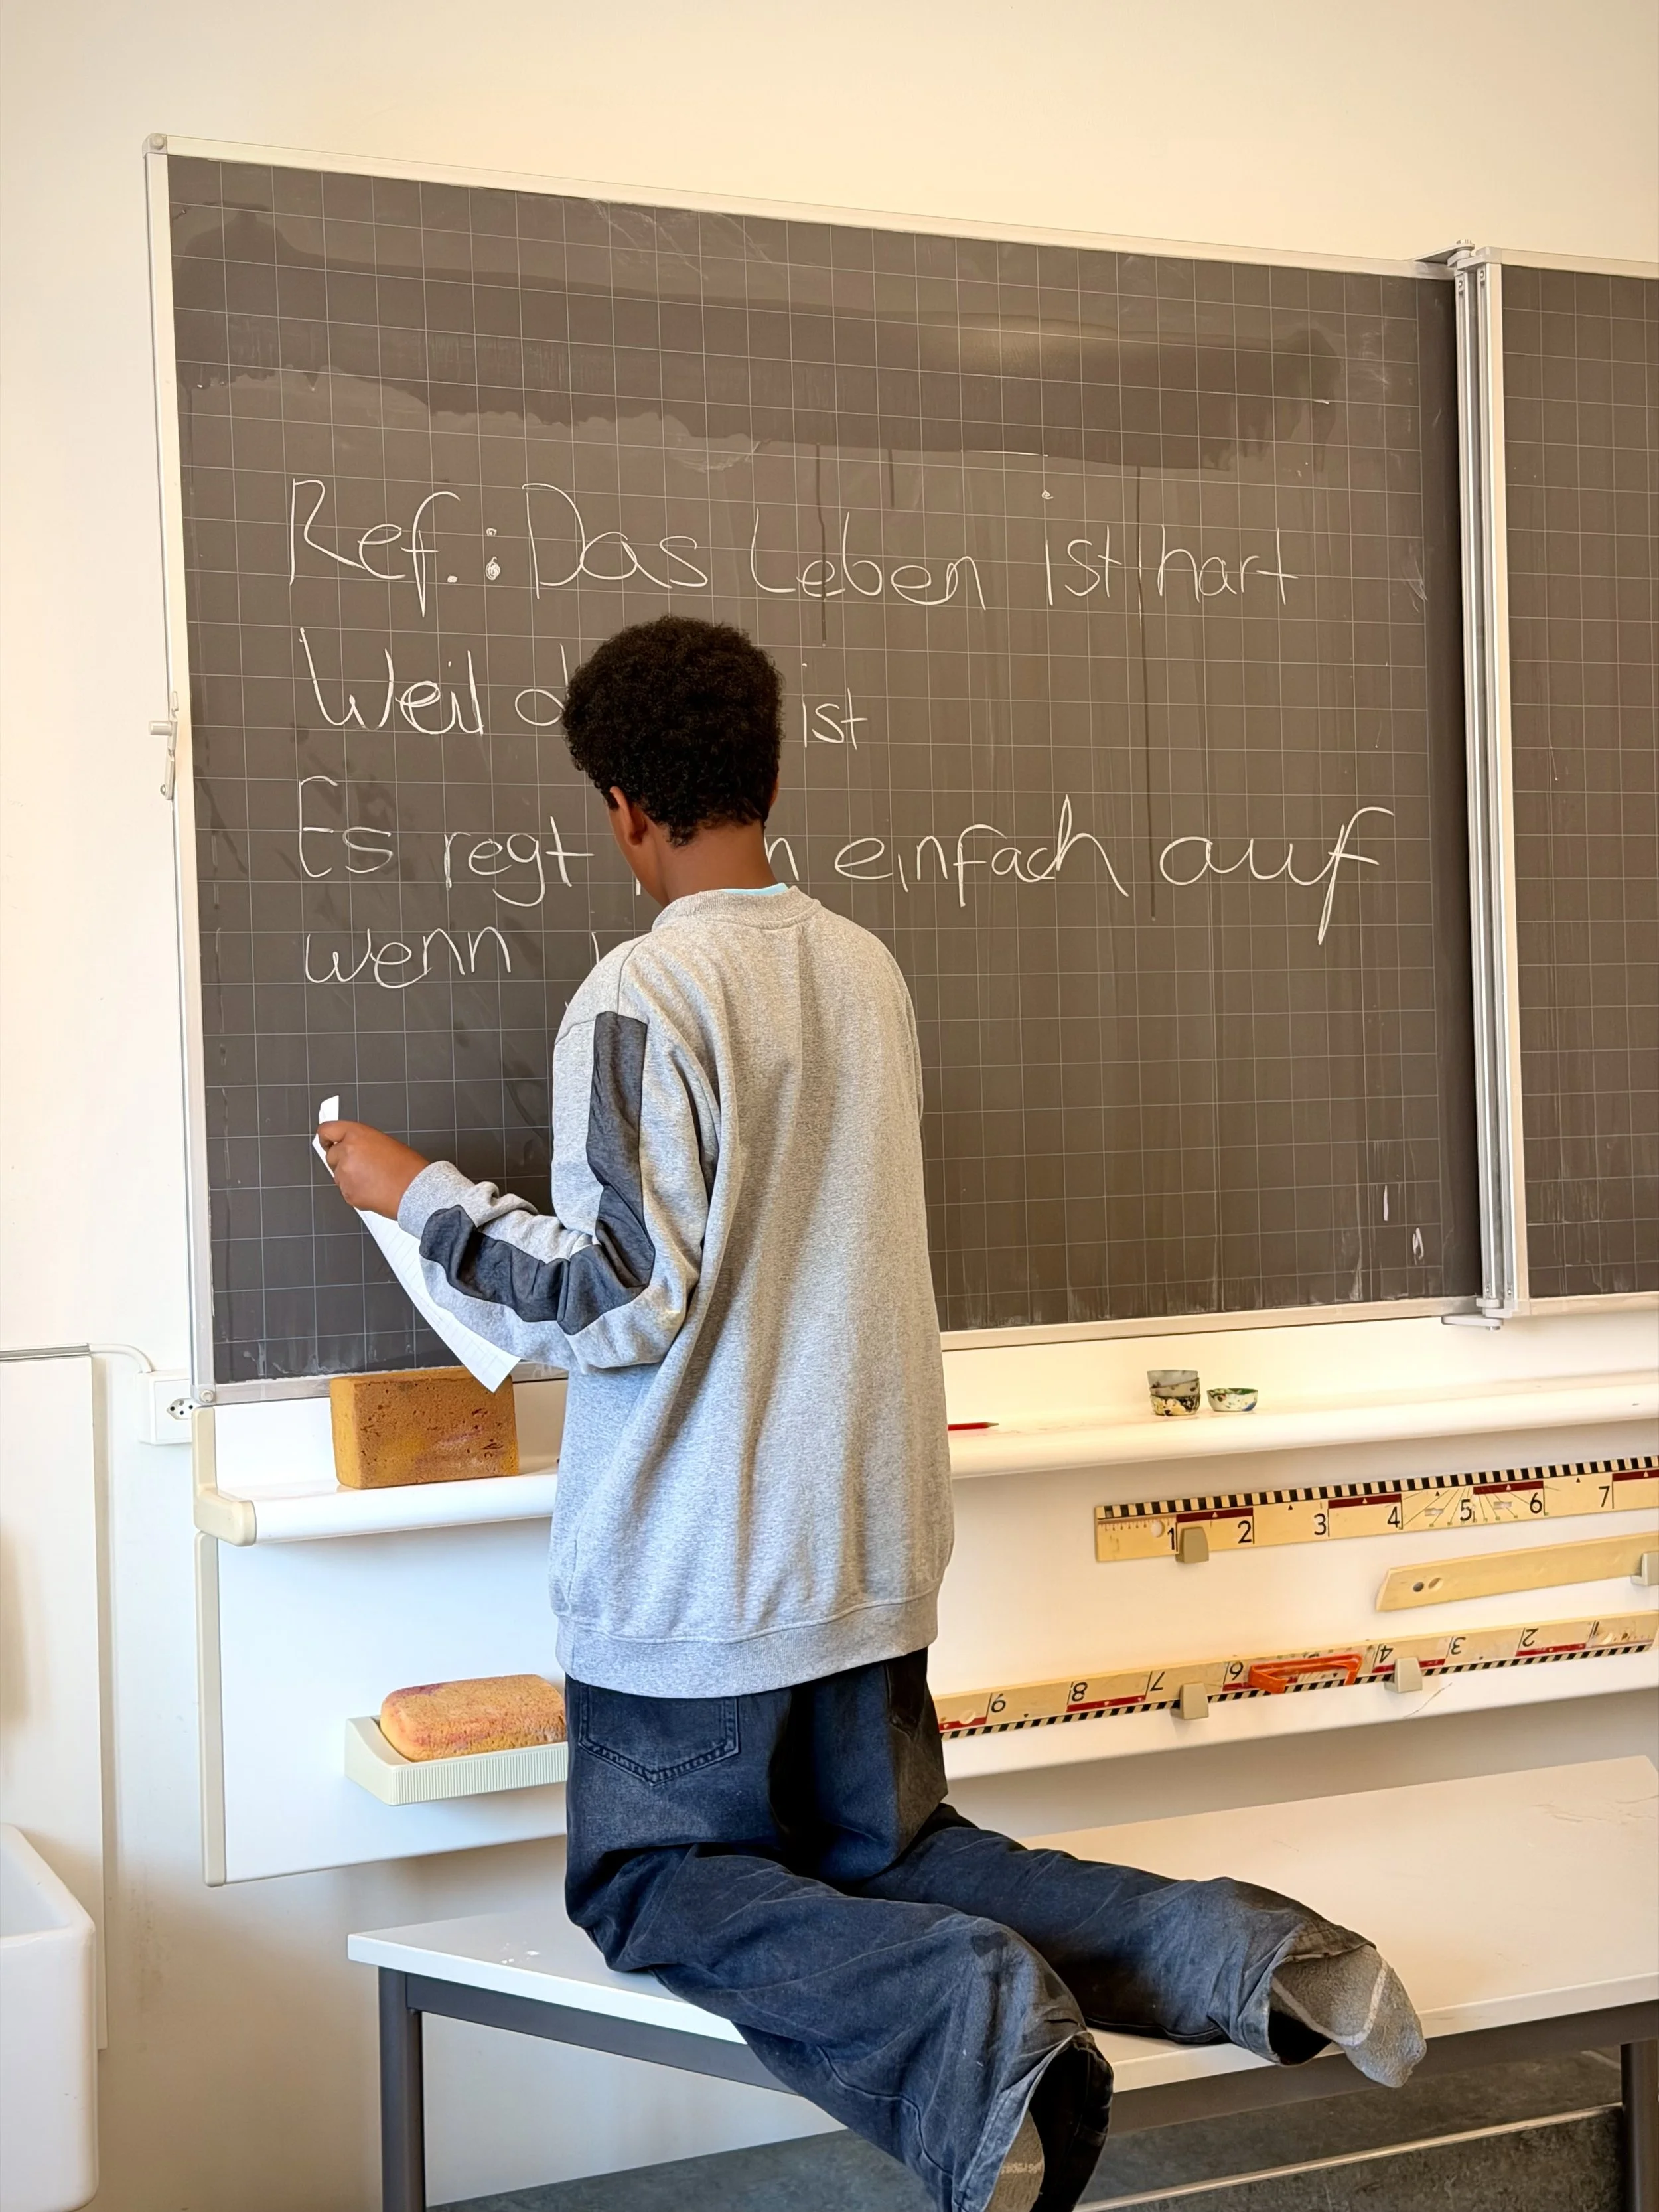 Ref.: Das Leben ist hart
Weil ist
Es regt einfach auf
wenn
1 2 3 4 5 6 7
9 8 7 6 4 3 2 1